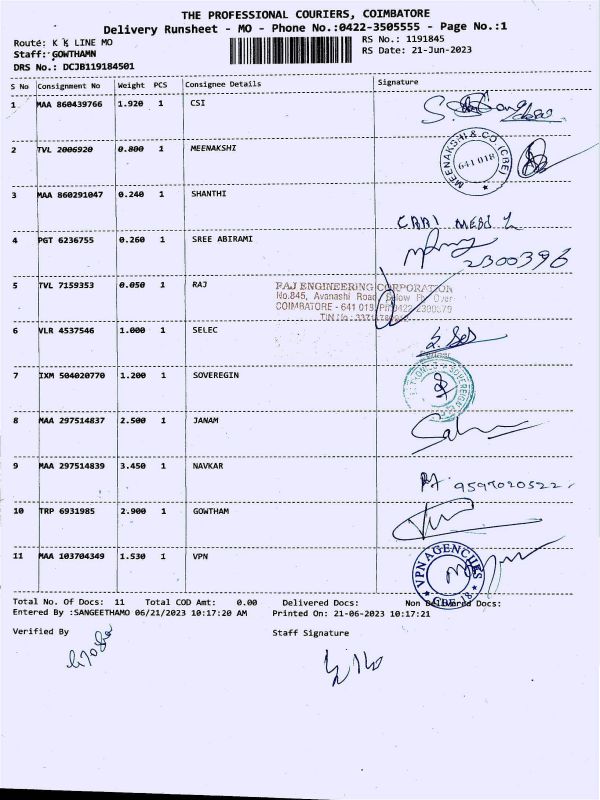 THE PROFESSIONAL COURIERS, COIMBATORE
Delivery Runsheet - MO - Phone No.:0422-3505555 - Page No.:1
Route: K K LINE MO
RS No.: 1191845
Staff: GOWTHAMN
RS Date: 21-Jun-2023
DRS No.: DCJB119184501
S No Consignment No Weight PCS Consignee Details Signature
1 MAA 860439766 1.920 1 CSI
2 TVL 2006920 0.800 1 MEENAKSHI
MEENAKSHI & CO (CBE) 641 018
3 MAA 860291047 0.240 1 SHANTHI
4 PGT 6236755 0.260 1 SREE ABIRAMI
2300396
5 TVL 7159353 0.050 1 RAJ
RAJ ENGINEERING CORPORATION
No.845, Avanashi Road, Below Fly Over
COIMBATORE - 641 018
6 VLR 4537546 1.000 1 SELEC
7 IXM 504020770 1.200 1 SOVEREGIN
8 MAA 297514837 2.500 1 JANAM
9 MAA 297514839 3.450 1 NAVKAR
9597020522
10 TRP 6931985 2.900 1 GOWTHAM
11 MAA 103704349 1.530 1 VPN
VPN AGENCIES CBE-18
Total No. Of Docs: 11 Total COD Amt: 0.00 Delivered Docs: Non Delivered Docs:
Entered By :SANGEETHAMO 06/21/2023 10:17:20 AM Printed On: 21-06-2023 10:17:21
Verified By Staff Signature